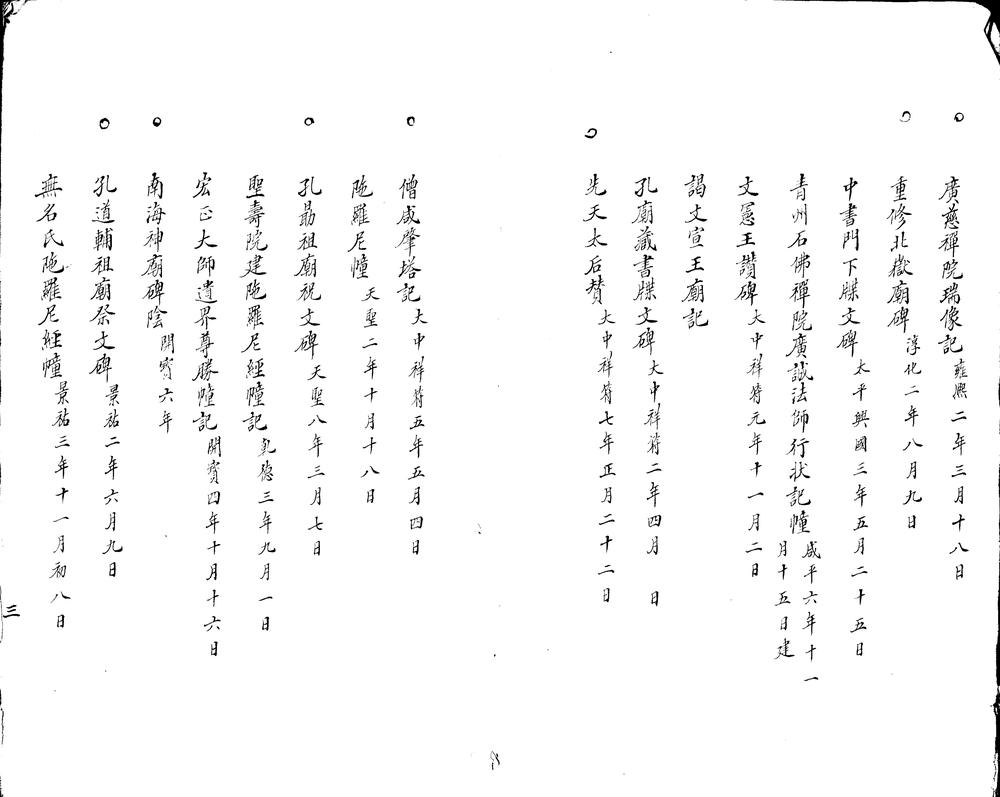 廣慈禪院瑞像記 雍熙二年三月十八日
重修北嶽廟碑 淳化二年八月九日
中書門下牒文碑 太平興國三年五月二十五日
青州石佛禪院廣誠法師行狀記幢 咸平六年十一月十五日建
文憲王讚碑 大中祥符元年十一月二日
謁文宣王廟記
孔廟藏書牒文碑 大中祥符二年四月 日
先天太后贊 大中祥符七年正月二十二日
僧咸肇塔記 大中祥符五年五月四日
陁羅尼幢 天聖二年十月十八日
孔勗祖廟祝文碑 天聖八年三月七日
聖壽院建陁羅尼經幢記 乹德三年九月一日
宏正大師遺界尊勝幢記 開寳四年十月十六日
南海神廟碑陰 開寳六年
孔道輔祖廟祭文碑 景祐二年六月九日
無名氏陁羅尼經幢 景祐三年十一月初八日
三